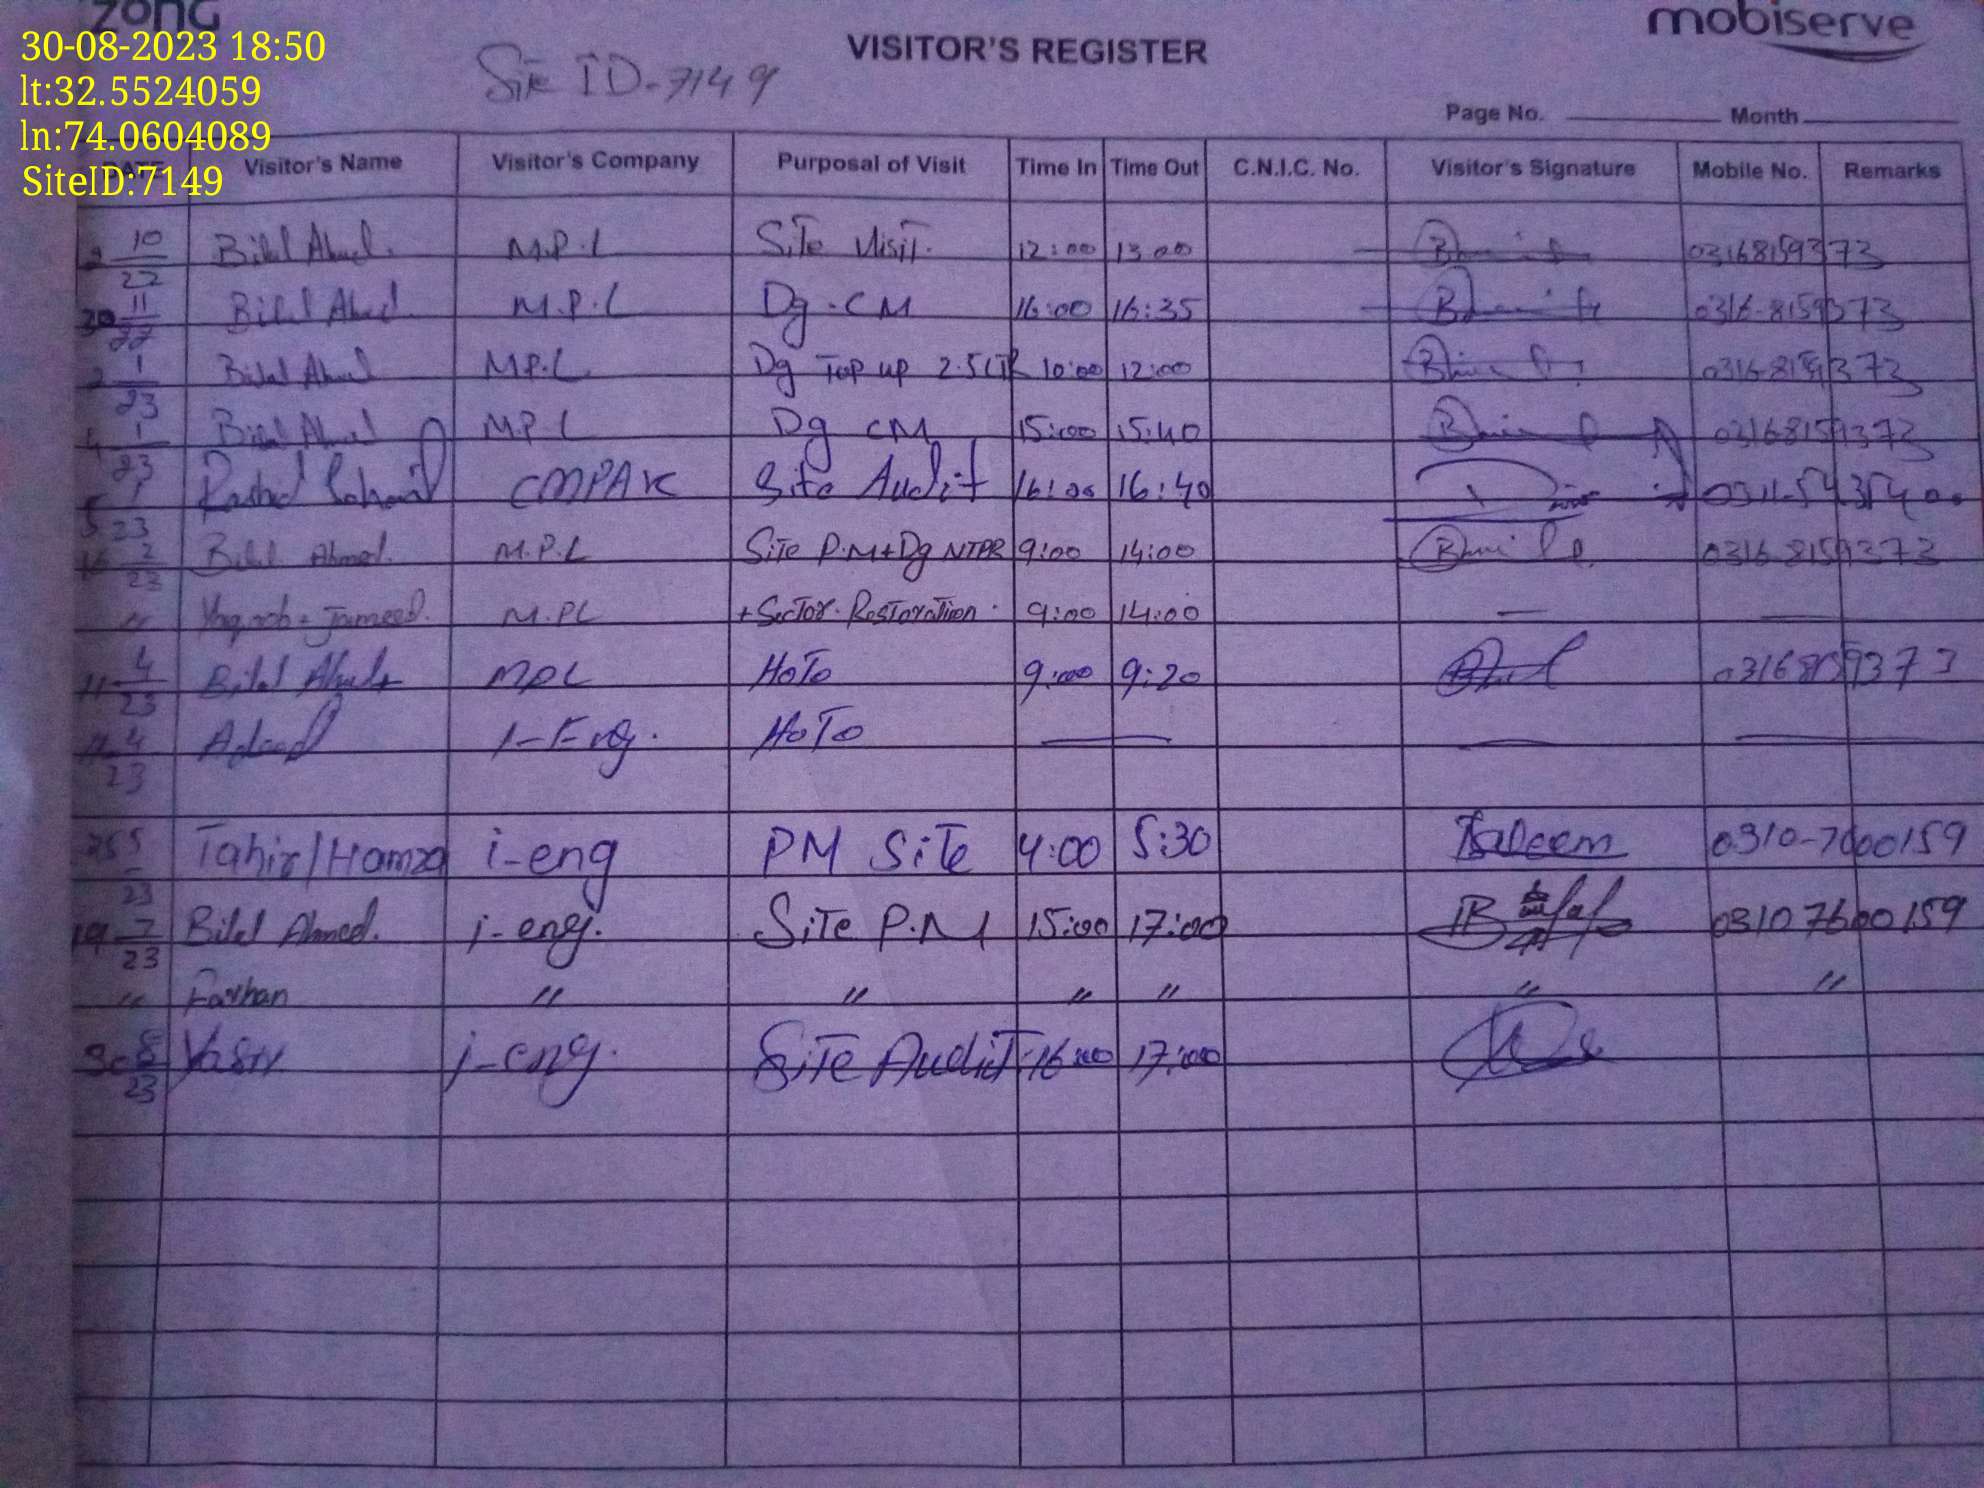 zong
mobiserve
30-08-2023 18:50
lt:32.5524059
ln:74.0604089
SiteID:7149
VISITOR'S REGISTER
Site ID-7149
Page No. Month
DATE Visitor's Name Visitor's Company Purposal of Visit Time In Time Out C.N.I.C. No. Visitor's Signature Mobile No. Remarks
2 10/22 Bilal Ahmed. M.P.L Site Visit. 12:00 13:00 03168159373
30 11/22 Bilal Ahmed M.P.L Dg. CM 16:00 16:35 0316-8159373
2 1/23 Bilal Ahmed M.P.L Dg Top up 2.5LTR 10:00 12:00 0316-8159373
4 1/23 Bilal Ahmed M.P.L Dg CM 15:00 15:40 03168159373
5 1/23 CMPAK Site Audit 16:00 16:40
16 2/23 Bilal Ahmed. M.P.L Site P.M+Dg 9:00 14:00 0316-8159373
" Yaqoob + Jameed. M.PL + Sector Restoration. 9:00 14:00 — —
11 4/23 Bilal Ahmed MPL HoTo 9:00 9:20 03168159373
11 4/23 I-Eng. HoTo — — —
25 5/23 Tahir/Hamza i-eng PM Site 4:00 5:30 Saleem 0310-7600159
19 7/23 Bilal Ahmed. i-eng. Site P.M 15:00 17:00 03107600159
" Farhan " " " " " "
30 8/23 Yasir i-eng. Site Audit 16:00 17:00